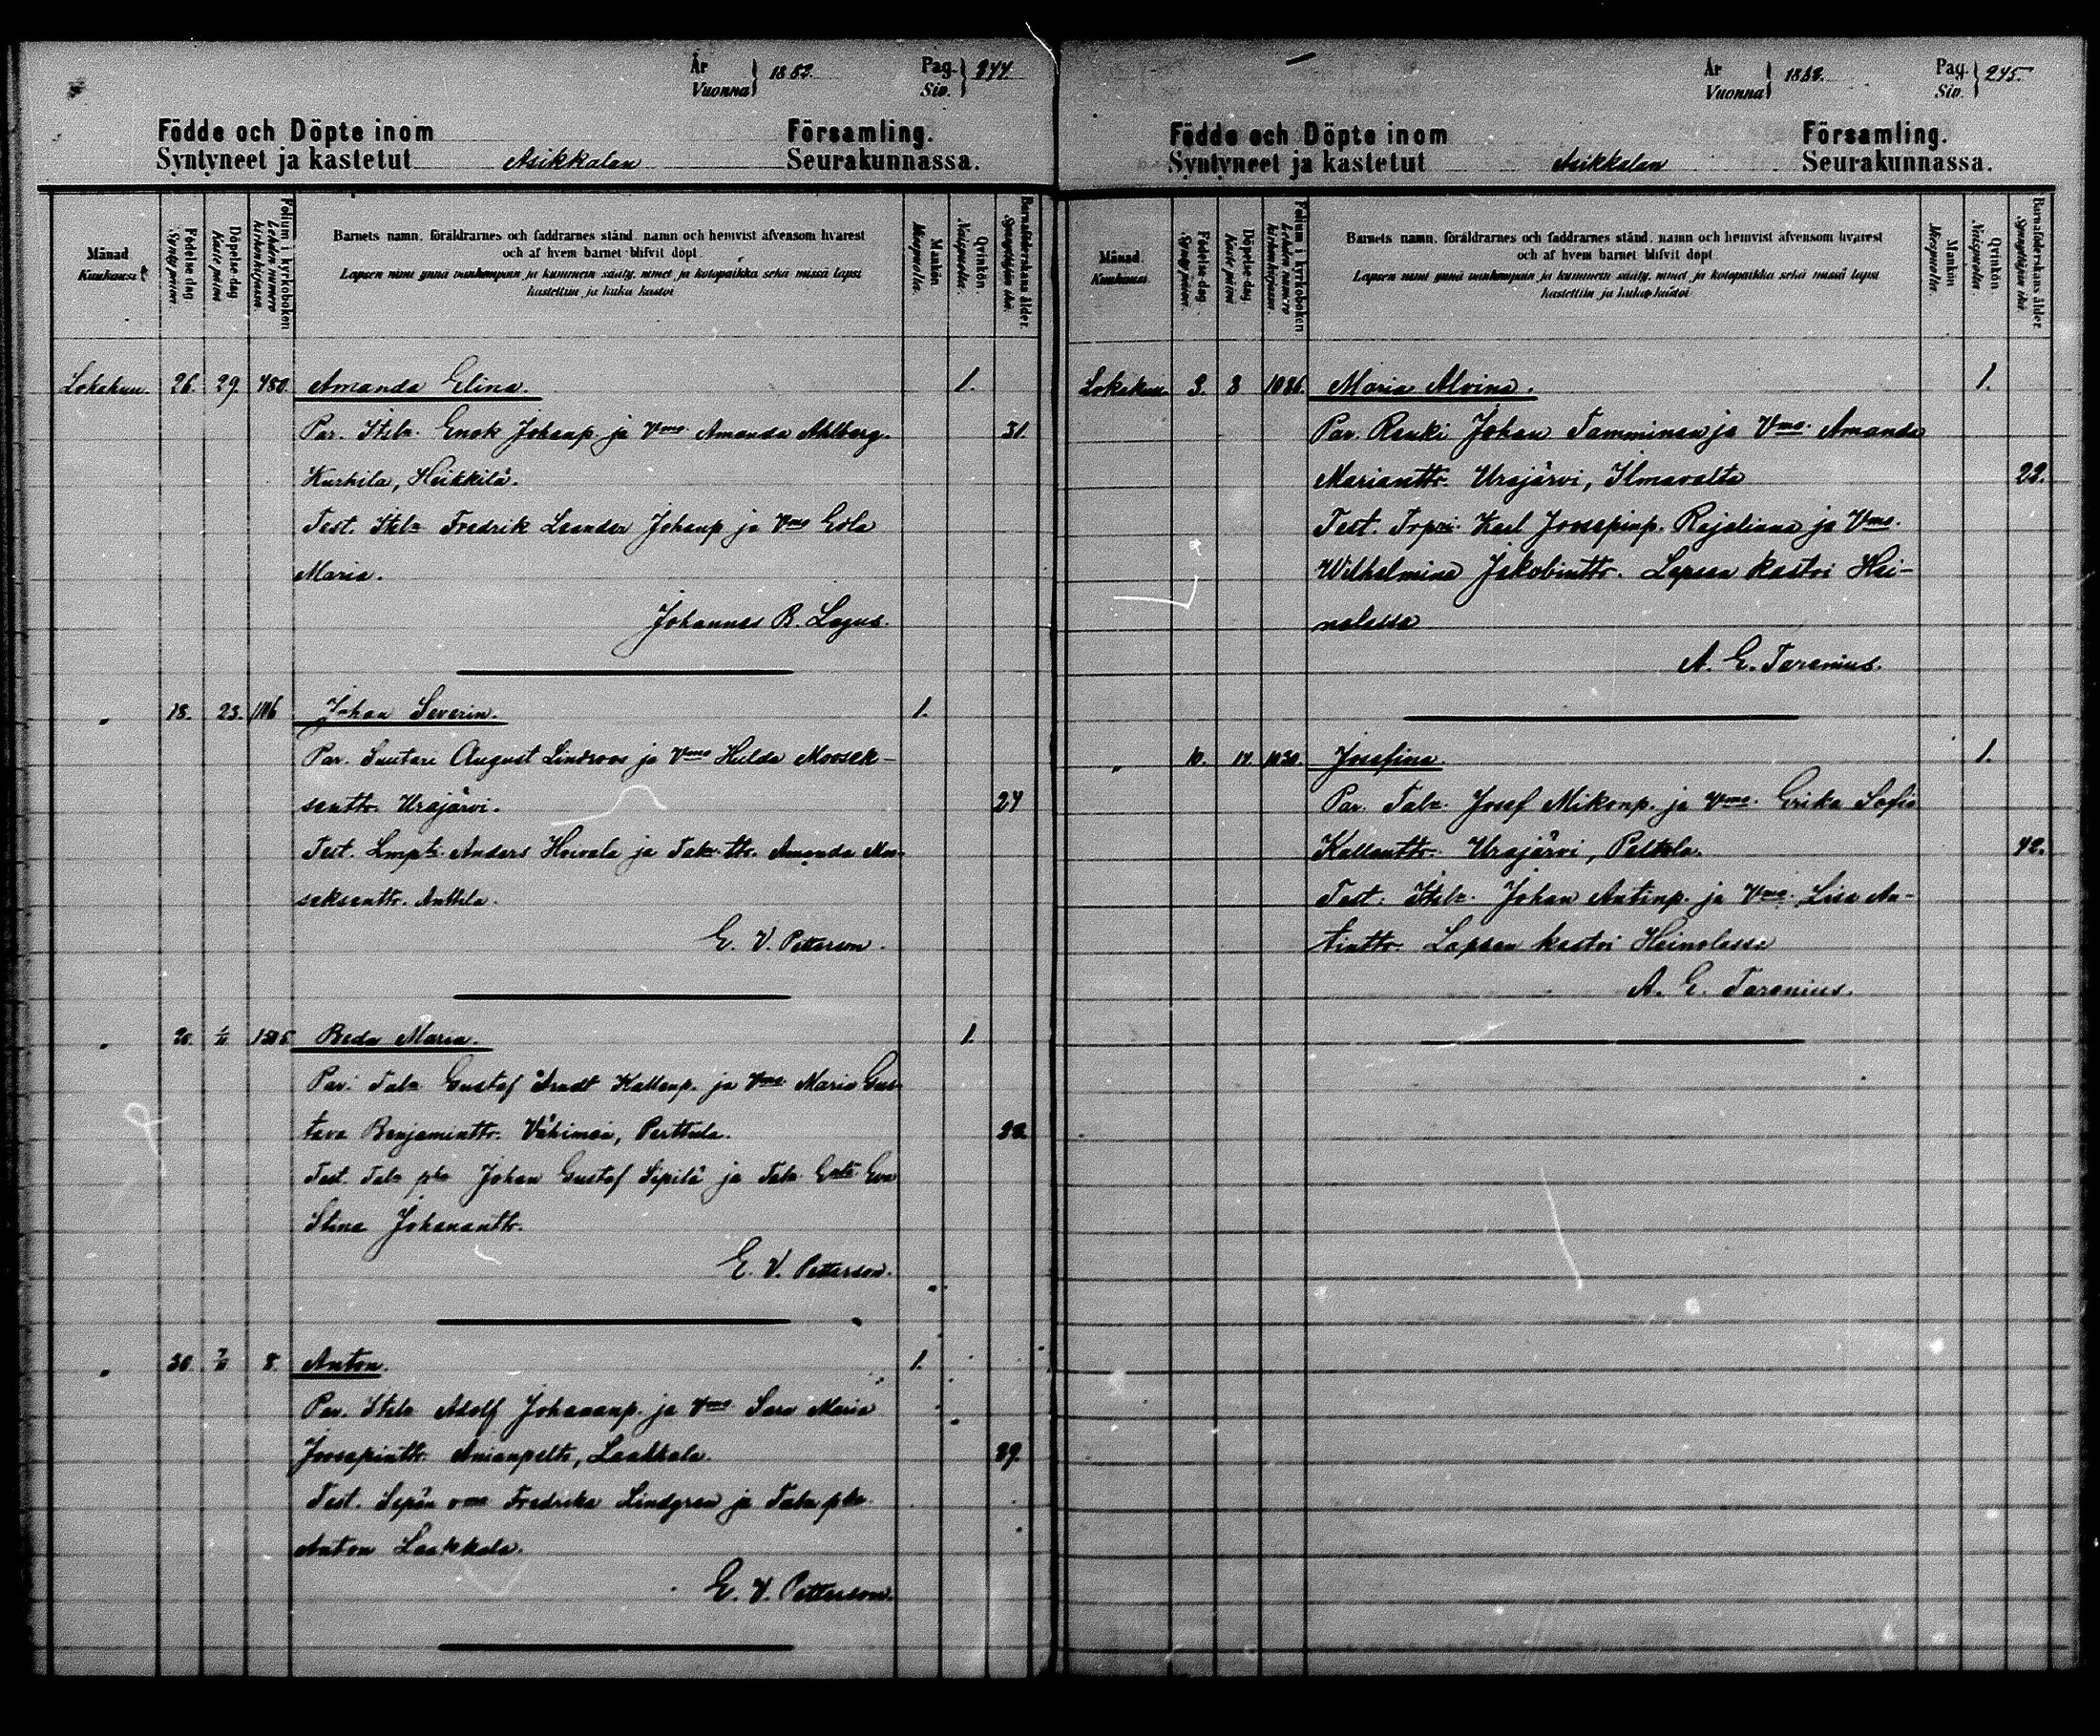 År
Vuonna } 1882.
Pag.
Siv. } 244
Födde och Döpte inom Församling.
Syntyneet ja kastetut Asikkalan Seurakunnassa.
Månad
Kuukausi
Födelse-dag
Synty päivä.
Döpelse-dag
Kaste päivä
Folium i kyrkoboken
Lehden numero kirkonkirjassa.
Barnets namn, föräldrarnes och faddrarnes stånd, namn och hemvist äfvensom hvarest
och af hvem barnet blifvit döpt.
Lapsen nimi ynnä vanhempain ja kummein sääty, nimet ja kotopaikka sekä missä lapsi
kastettiin ja kuka kastoi
Mankön
Miespuolia.
Qvinkön
Naispuolia.
Barnaföderskans ålder.
Synnyttäjän ikä.
Lokakuu. 26. 29. 480. Amanda Elina. 1.
Par. Itsln. Enok Johanp. ja Vmo Amanda Ahlberg. 31.
Kurhila, Heikkilä.
Test. Itsln Fredrik Leander Johanp ja Vmo Eola
Maria.
Johannes B. Lagus.
" 18. 23. 1116 Johan Severin. 1.
Par. Suutari August Lindroos ja Vmo Hulda Moosek-
senttr. Urajärvi. 24
Test. Lmpts. Anders Hoivala ja Taln. ttr. Amanda Moo-
seksenttr. Anttila.
E. V. Petterson.
" 20. 1505 Beda Maria. 1.
Par. Taln Gustaf Arndt Kallenp. ja Vmo Maria Gus-
tava Benjaminttr. Vähimaa, Perttula.
Test. Taln pka Johan Gustaf Sipilä ja Taln Eva
Stina Johananttr.
E. V. Petterson.
" 30. 8. Anton. 1.
Par. Itsln Adolf Johananp. ja Vmo Sara Maria
Joosepinttr. Anianpelto, Laakkala. 39.
Test. Sepän vmo Fredrika Lindgren ja Taln pka
Anton Laakkala.
E. V. Petterson.
År
Vuonna } 1882.
Pag.
Siv. } 245.
Födde och Döpte inom Församling.
Syntyneet ja kastetut Asikkalan Seurakunnassa.
Månad
Kuukausi
Födelse-dag
Synty päivä.
Döpelse-dag
Kaste päivä
Folium i kyrkoboken
Lehden numero kirkonkirjassa.
Barnets namn, föräldrarnes och faddrarnes stånd, namn och hemvist äfvensom hvarest
och af hvem barnet blifvit döpt
Lapsen nimi ynnä vanhempain ja kummein sääty, nimet ja kotopaikka sekä missä lapsi
kastettiin ja kuka kastoi
Mankön
Miespuolia.
Qvinkön
Naispuolia.
Barnaföderskans ålder.
Synnyttäjän ikä.
Lokakuu 3. 8 1086. Maria Alvina. 1.
Par. Renki Johan Tamminen ja Vmo. Amanda
Marianttr. Urajärvi, Ilmavalta 22.
Test. Trpri. Karl Joosepinp. Rajalinna ja Vmo.
Wilhelmina Jakobinttr. Lapsen kastoi Hei-
nolassa
A. E. Taronius.
" 10. 14. 1030. Josefina. 1.
Par. Taln. Josef Mikonp. ja Vmo. Erika Sofia
Kallenttr. Urajärvi, Peltola. 42.
Test. Itsln. Johan Antinp. ja Vmo. Lisa An-
tinttr. Lapsen kastoi Heinolassa
A. E. Taronius.